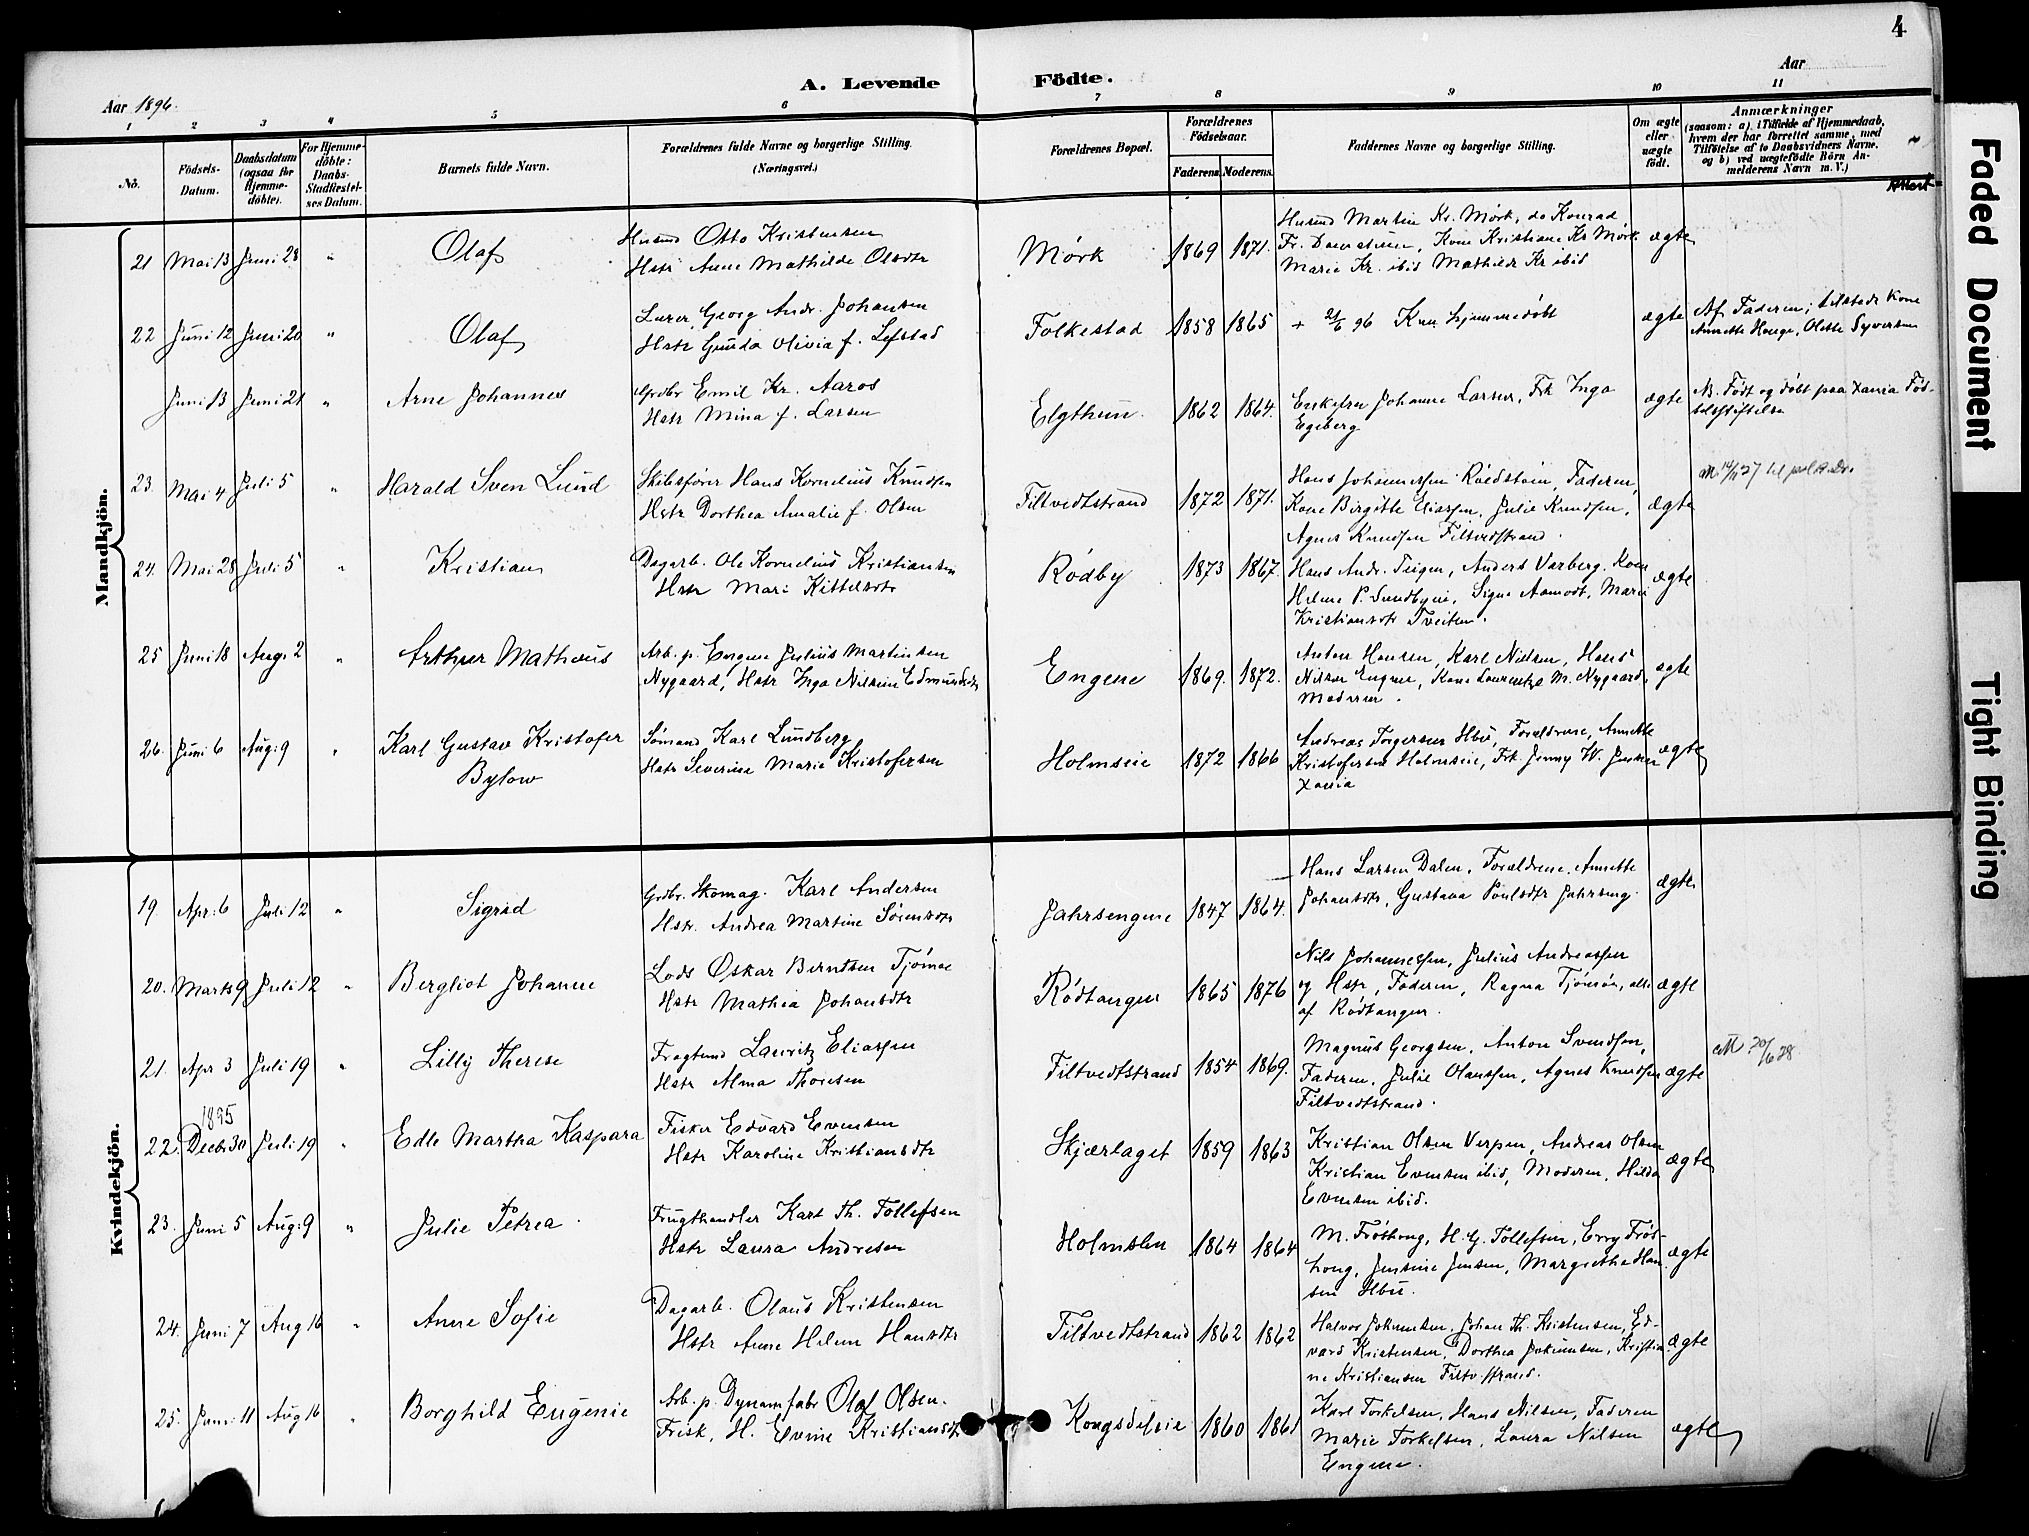 4
A. Levende Födte.
Aar 1896.
Aar
1 2 3 4 5 6 7 8 9 10 11
No.
Födsels-Datum.
Daabsdatum (ogsaa for Hjemme-döbte).
For Hjemme-döbte: Daabs-Stadfæstel-ses Datum.
Barnets fulde Navn.
Forældrenes fulde Navne og borgerlige Stilling. (Næringsvei.)
Forældrenes Bopæl.
Forældrenes Födselsaar.
Faderens. Moderens.
Faddernes Navne og borgerlige Stilling.
Om ægte eller uægte födt.
Anmærkninger
(saasom: a) i Tilfælde af Hjemmedaab, hvem der har forrettet samme, med Tilföielse af to Daabsvidners Navne, og b) ved uægtefödte Börn An-melderens Navn m. V.)
Mandkjön.
21 Mai 13 Juni 28 " Olaf
Husmd Otto Kristensen
Hstr Anne Mathilde Olsdtr
Mørk 1869 1871.
Husmd Martin Kr. Mørk, do Konrad
Kone Kristiane Kr Mørk
Marie Kr. ibid Mathilde Kr ibid
ægte
22 Juni 12 Juni 20 " Olaf
Georg Andr. Johansen
Hstr Gunda Olivia f. Lefstad
Folkestad 1858 1865
+ 21/6 96 Kun hjemmedøbt
ægte
Af Faderen; tilstede Kone
Annette Hauge, Olette Syversen
Juni 13 Juni 21 " Arne Johannes
Grdbr Emil Kr. Aaros
Hstr Mina f. Larsen
Elgthun. 1862 1864.
Enkefru Johanne Larsen, Frk Inga
Egeberg
ægte
NB. Født og døbt paa Xania Fød-
selsstiftelse
23. Mai 4 Juli 5 " Harald Sven Lund
Skibsfører Hans Kornelius Knudsen
Hstr Dorthea Amalie f. Olsen
Filtvedtstrand 1872 1871.
Hans Johannessen Faderen,
Kone Birgitte Eliassen, Julie Knudsen,
Agnes Knudsen Filtvedtstrand.
ægte
24. Mai 28 Juli 5 " Kristian
Dagarb. Ole Kornelius Kristiansen
Hstr Mari Kittelsdtr
Rødby 1873 1867.
Hans Andr. Teigen, Anders Varberg. Kone
Helene P. Sundbyeie, Signe Aamodt, Marie
Kristiansdtr Tveiten.
ægte
25 Juni 18 Aug. 2 " Arthur Mathæus
Arb. p. Engene Julius Martinsen
Nygaard, Hstr Inga Nilsine Edmundsdtr
Engene 1869. 1872.
Anton Hansen, Karl Nielsen, Hans
Nilsen Engene, Kone Laurentze M. Nygaard,
Moderen.
ægte
26. Juni 6 Aug: 9 " Karl Gustav Kristofer
Bylow
Sømand Karl Lundberg
Hstr Severine Marie Kristofersen
Holmseie 1872 1866
Andreas Torgersen Hbu, Forældrene, Annette
Kristofersen Holmseie, Frk Jenny W. Jensen
Xania
ægte
Kvindekjön.
19. Apr: 6 Juli 12 " Sigrid
Grdbr. Skomag. Karl Andersen
Hstr. Andrea Martine Sørensdtr
Jahrsengene 1847 1864.
Hans Larsen Dalen, Forældrene, Annette
Johansdtr, Gustava Poulsdtr Jahrseng.
ægte
20. Marts 9 Juli 12 " Bergliot Johanne
Lods Oskar Berntsen Tjømøe
Hstr Mathea Johansdtr
Rødtangen 1865 1876
Nils Johannessen, Julius Andreassen
og Hstr, Faderen, Ragna Tjømøe, alle
af Rødtangen.
ægte
21. Apr 3 Juli 19 " Lilly Therese
Fragtmd Lauritz Eliassen
Hstr Alma Thoresen
Filtvedtstrand 1854 1869.
Magnus Georgsen, Anton Svendsen,
Faderen, Julie Olaussen, Agnes Knudsen
Filtvedtstrand.
ægte
M 20/6 28
22. 1895 Decbr 30 Juli 19 " Edle Martha Kaspara
Fisker Edvard Evensen
Hstr Karoline Kristiansdtr
Skjærlaget 1859 1863
Kristian Olsen Verpen, Andreas Olsen
Kristian Evensen ibid, Moderen, Hilda
Evensen ibid.
ægte
23. Juni 5 Aug: 9 " Julie Petrea
Frugthandler Karl Th. Tollefsen
Hstr Laura Andresen
Holmslin 1864 1864
M. Frøshoug, H. G. Tollefsen, Erry Frøs-
houg, Jensine Jensen, Margrethe Han-
sen Hbu.
ægte
24. Juni 7 Aug 16 " Anne Sofie
Dagarb. Olaus Kristensen
Hstr Anne Helene Hansdtr
Filtvedtstrand 1862 1862
Halvor Jokumsen, Johan Th. Kristensen, Ed-
vard Kristensen, Dorthea Jokumsen, Kristia-
ne Kristiansen Filtv.strand.
ægte
25. Juni 11 Aug 16 " Borghild Eugenie
Arb. p. Dynamfabr Olaf Olsen.
Frisk, H. Evine Kristiansdtr
Kongsdeleie 1860 1861
Karl Torkelsen, Hans Nilsen, Faderen
Marie Torkelsen, Laura Nilsen
Engene.
ægte
Faded Document
Tight Binding